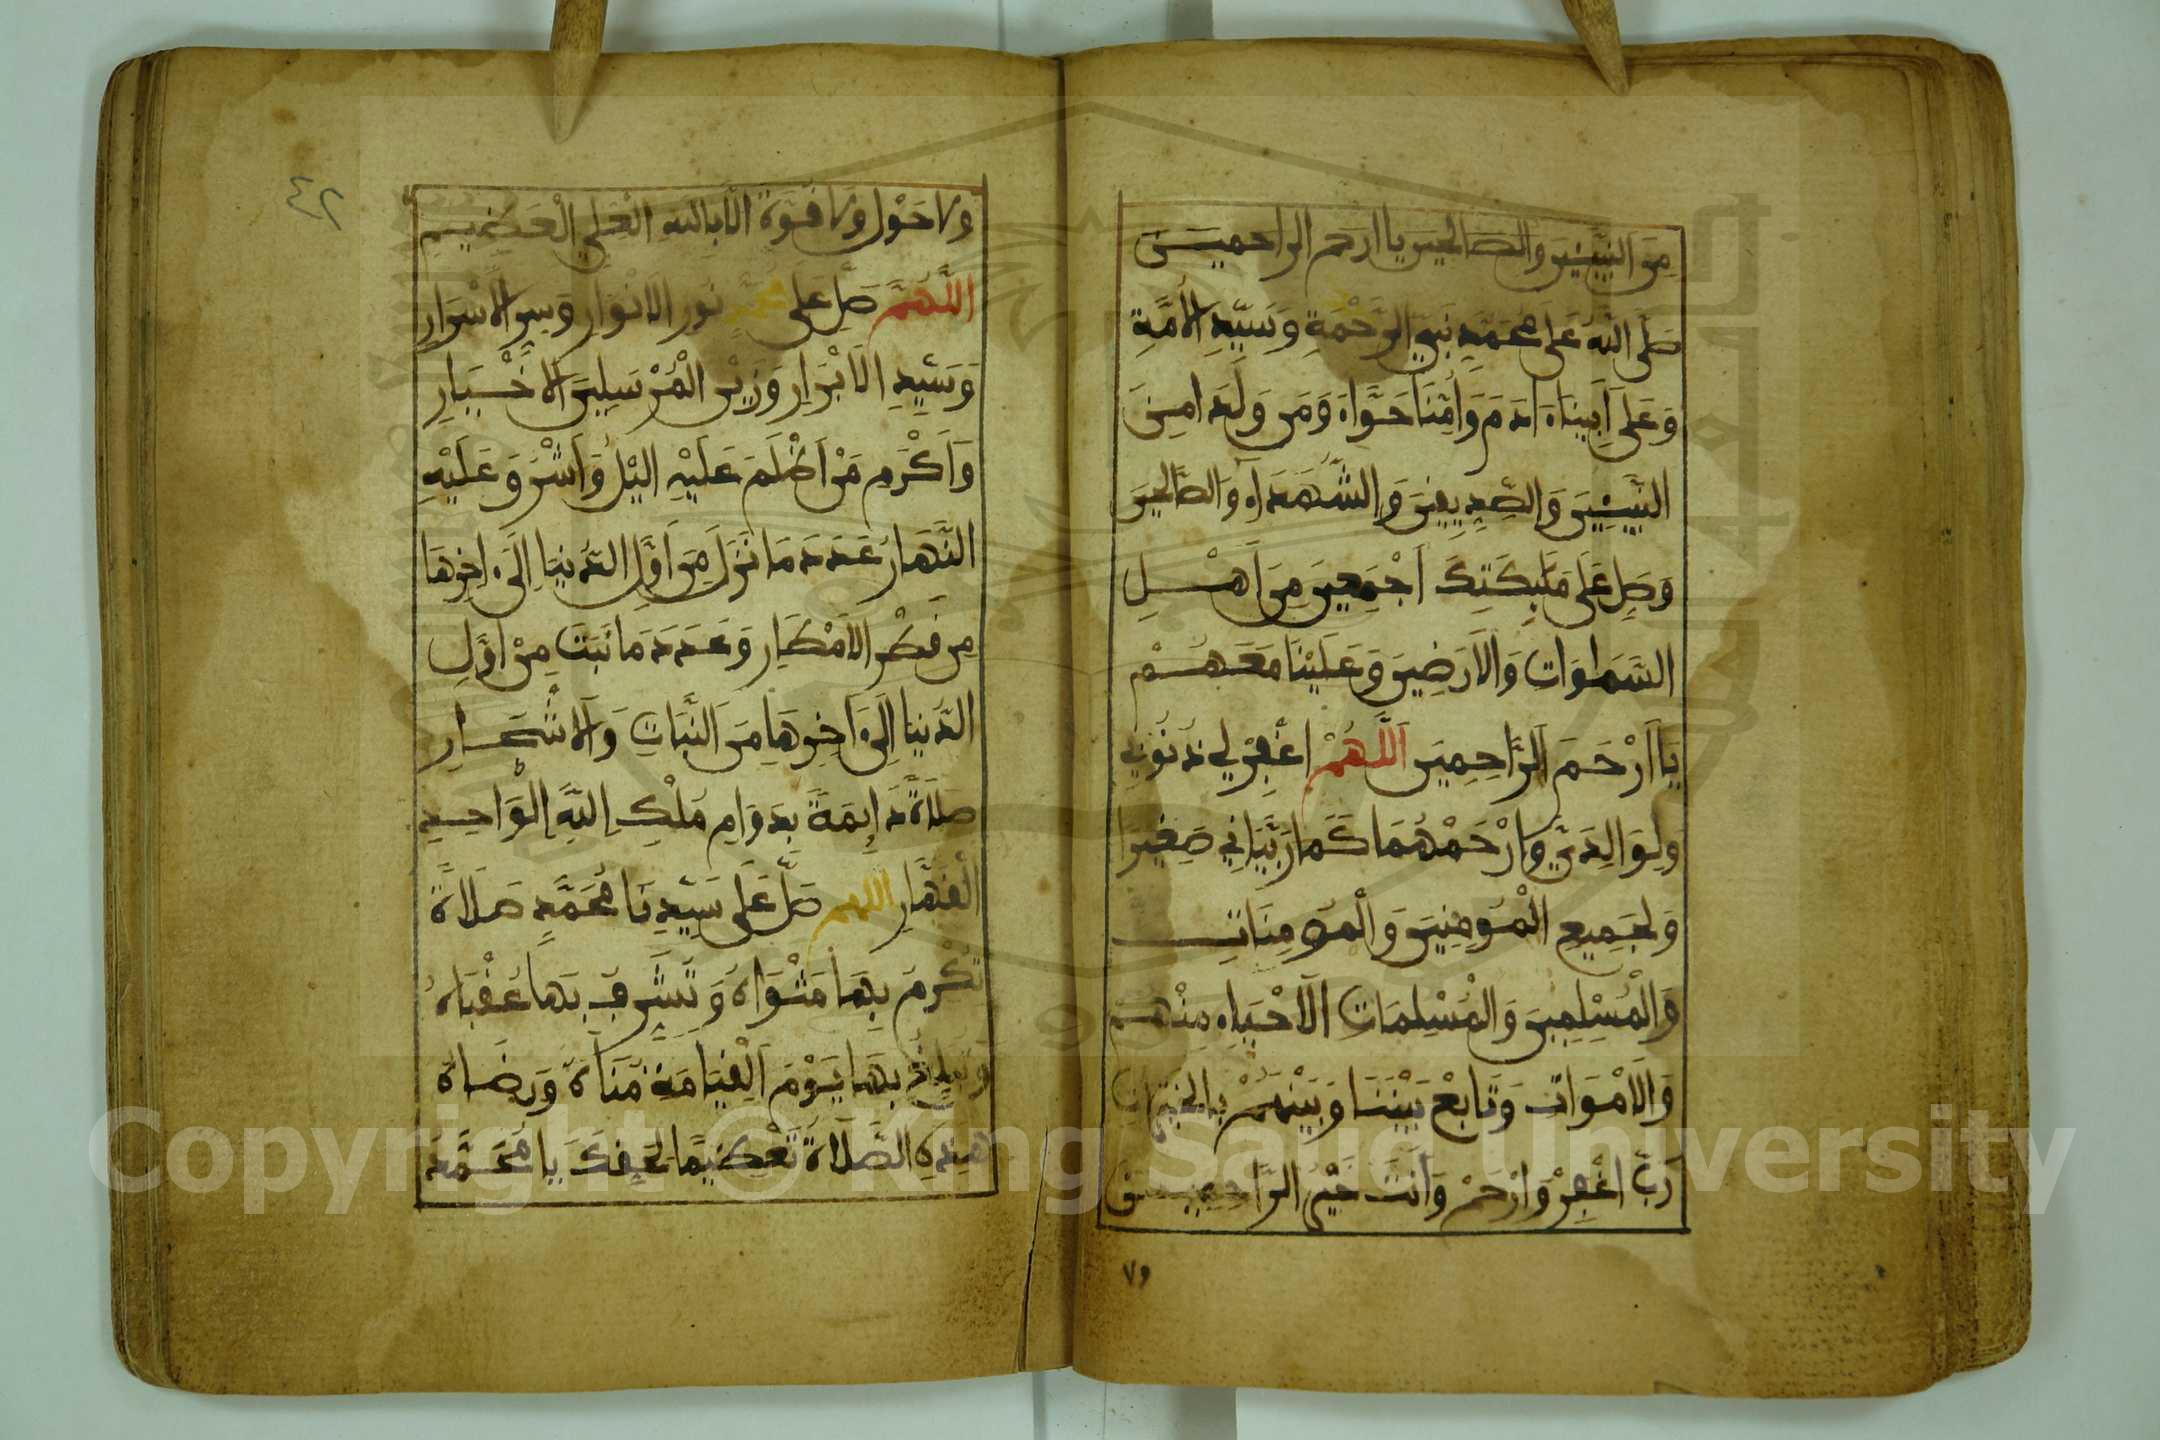 مِنَ النَّبِيِّينَ وَالصَّالِحِينَ يَا ارحم الراحمين
صَلَّى اللهُ عَلَى مُحَمَّدٍ نَبِيِّ الرَّحْمَةِ وَسَيِّدِ الأُمَّةِ
وَعَلَى أَبِينَا ءَادَمَ وَأُمِّنَا حَوَّاءَ وَمَن وَلَدَا مِنَ
النَّبِيِّينَ وَالصِّدِّيقِينَ وَالشُّهَدَاءِ وَالصَّالِحِينَ
وَصَلِّ عَلَى مَلَئِكَتِكَ أَجْمَعِينَ مِنَ أَهْلِ
السَّمَوَاتِ وَالأَرَضِينَ وَعَلَيْنَا مَعَهُمْ
يَا أَرْحَمَ الرَّاحِمِينَ اللَّهُمَّ اغْفِرْ لِي ذُنُوبِي
وَلِوَالِدَيَّ وَارْحَمْهُمَا كَمَا رَبَّيَانِي صَغِيرًا
وَلِجَمِيعِ الْمُؤمِنِينَ وَالْمُؤمِنَاتِ
وَالْمُسْلِمِينَ وَالْمُسْلِمَاتِ الأَحْيَاءِ مِنْهُمْ
وَالأَمْوَاتِ وَتَابِعْ بَيْنَنَا وَبَيْنَهُمْ بِالْخَيْرَاتِ
رَبِّ اغْفِرْ وَارْحَمْ وَأَنتَ خَيْرُ الرَّاحِمِينَ
ولا حَوْلَ وَلا قُوَّةَ إلا بِاللهِ الْعَلِيِّ الْعَظِيمِ
اللَّهُمَّ صَلِّ عَلَى مُحَمَّدٍ نُورِ الأَنْوَارِ وَسِرِّ الأَسْرَارِ
وَسَيِّدِ الأَبْرَارِ وَزَيْنِ الْمُرْسَلِينَ الأَخْيَارِ
وَأَكْرَمِ مَنْ أَظْلَمَ عَلَيْهِ اليْلُ وَأَشْرَقَ عَلَيْهِ
النَّهَارُ عَدَدَ مَا نَزَلَ مِنَ أَوَّلِ الدُّنْيَا إِلَى ءَاخِرِهَا
مِن قَطْرِ الأَمْطَارِ وَعَدَدَ مَا نَبَتَ مِنْ أَوَّلِ
الدُّنْيَا إِلَى ءَاخِرِهَا مِنَ النَّبَاتِ وَالأَشْجَارِ
صَلَاةً دَائِمَةً بِدَوَامِ مُلْكِ اللَّهِ الْوَاحِدِ
الْقَهَّارِ اللهم صَلِّ عَلَى سَيِّدِنَا مُحَمَّدٍ صَلَاةً
تُكْرِمُ بِهَا مَثْوَاهُ وَتُشَرِّفُ بِهَا عُقْبَاهُ
وَتُبَلِّغُ بِهَا يَوْمَ الْقِيَامَةِ مُنَاهُ وَرِضَاهُ
هَذِهِ الصَّلَاةُ تَعْظِيمًا لِحَقِّكَ يَا مُحَمَّدُ
٤٢
٧٩
Copyright © King Saud University